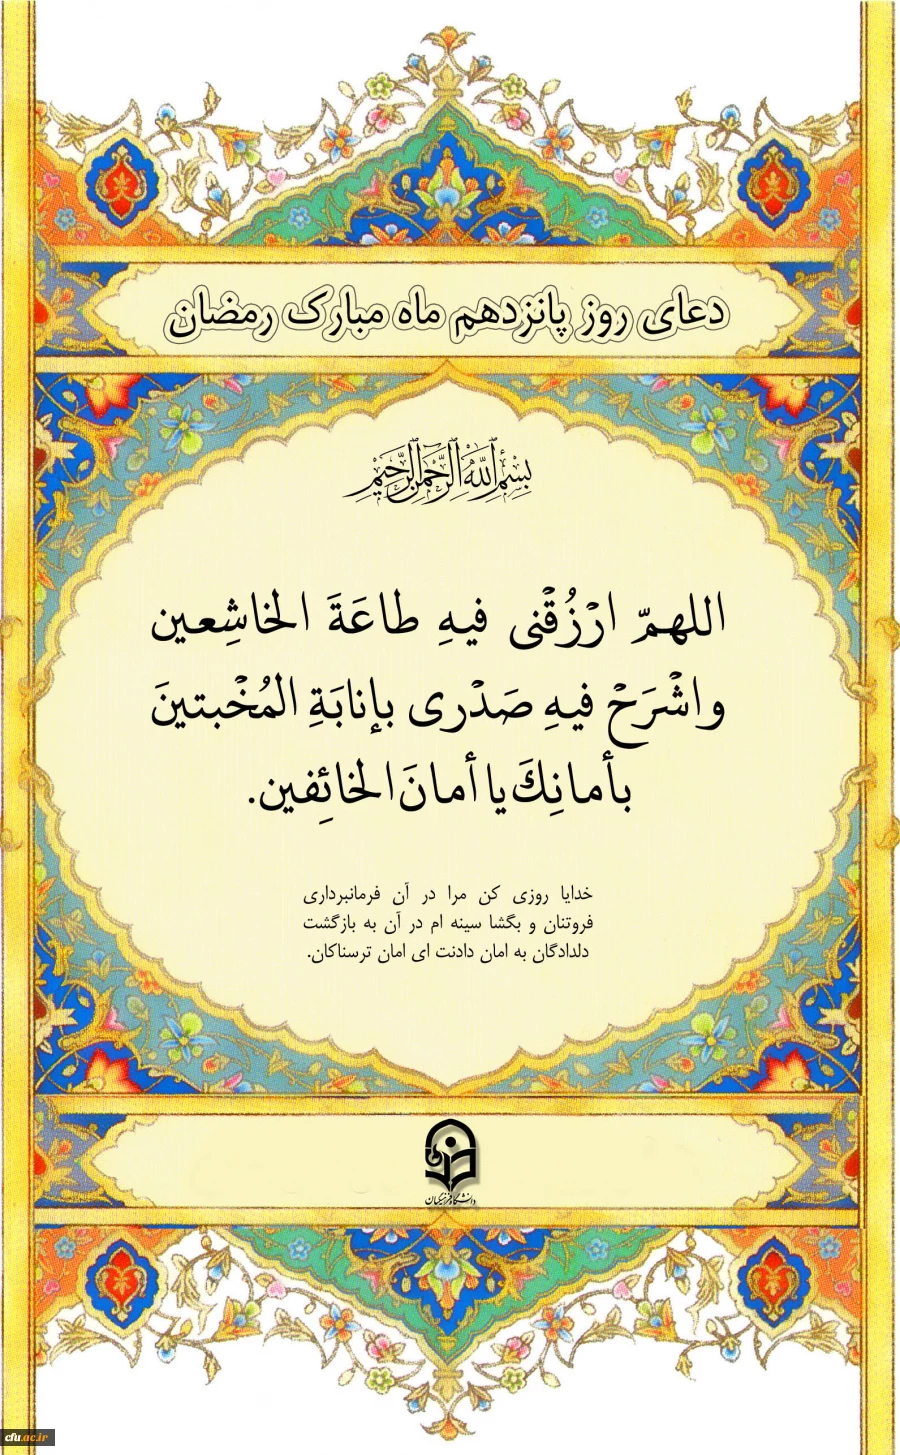 دعای روز پانزدهم ماه مبارک رمضان
بِسْمِ ٱللَّهِ ٱلرَّحْمَٰنِ ٱلرَّحِيمِ
اللهمّ ارْزُقْنی فیهِ طاعَةَ الخاشِعین
واشْرَحْ فیهِ صَدْری بإنابَةِ المُخْبتینَ
بأمانِكَ یا أمانَ الخائِفین.
خدایا روزی کن مرا در آن فرمانبرداری
فروتنان و بگشا سینه ام در آن به بازگشت
دلدادگان به امان دادنت ای امان ترسناکان.
دانشگاه فرهنگیان
cfu.ac.ir